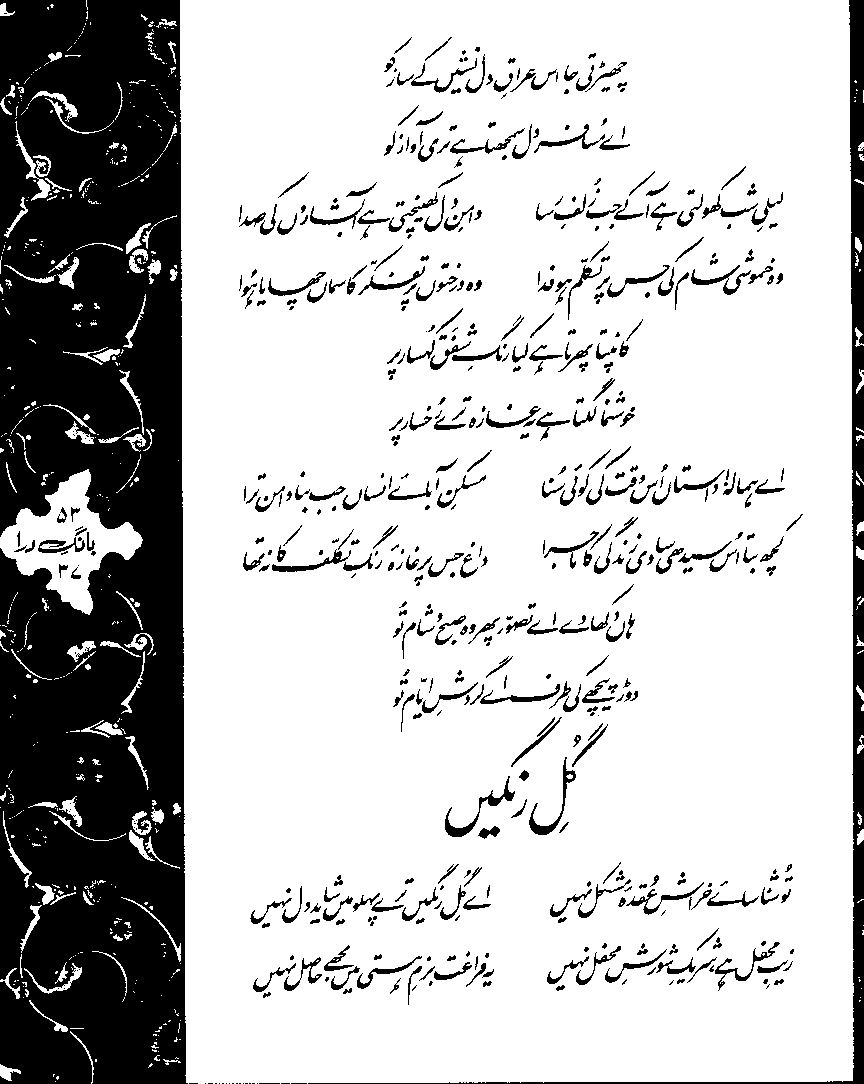 چھیڑتی جا اس عراقِ دل نشیں کے ساز کو
اے مُسافر دل سمجھتا ہے تری آواز کو
لیلیِ شب کھولتی ہے آ کے جب زُلفِ رَسا دامنِ دل کھینچتی ہے آبشاروں کی صدا
وہ خموشی شام کی جس پر تکلّم ہو فدا وہ درختوں پر تفکّر کا سماں چھایا ہُوا
کانپتا پھرتا ہے کیا رنگِ شفَق کُہسار پر
خوشنما لگتا ہے یہ غازہ ترے رُخسار پر
اے ہمالہ! داستاں اُس وقت کی کوئی سُنا مسکنِ آبائے انساں جب بنا دامن ترا
کچھ بتا اُس سیدھی سادی زندگی کا ماجرا داغ جس پر غازۂ رنگِ تکلّف کا نہ تھا
ہاں دِکھا دے اے تصوّر پھر وہ صبح و شام تُو
دوڑ پیچھے کی طرف اے گردشِ ایّام تُو
۵۳
بانگِ درا
۳۷
گُلِ رنگیں
تُو شناسائے خراشِ عُقدۂ مشکل نہیں اے گُلِ رنگیں ترے پہلو میں شاید دل نہیں
زیبِ محفل ہے، شریکِ شورشِ محفل نہیں یہ فراغت بزمِ ہستی میں مجھے حاصل نہیں